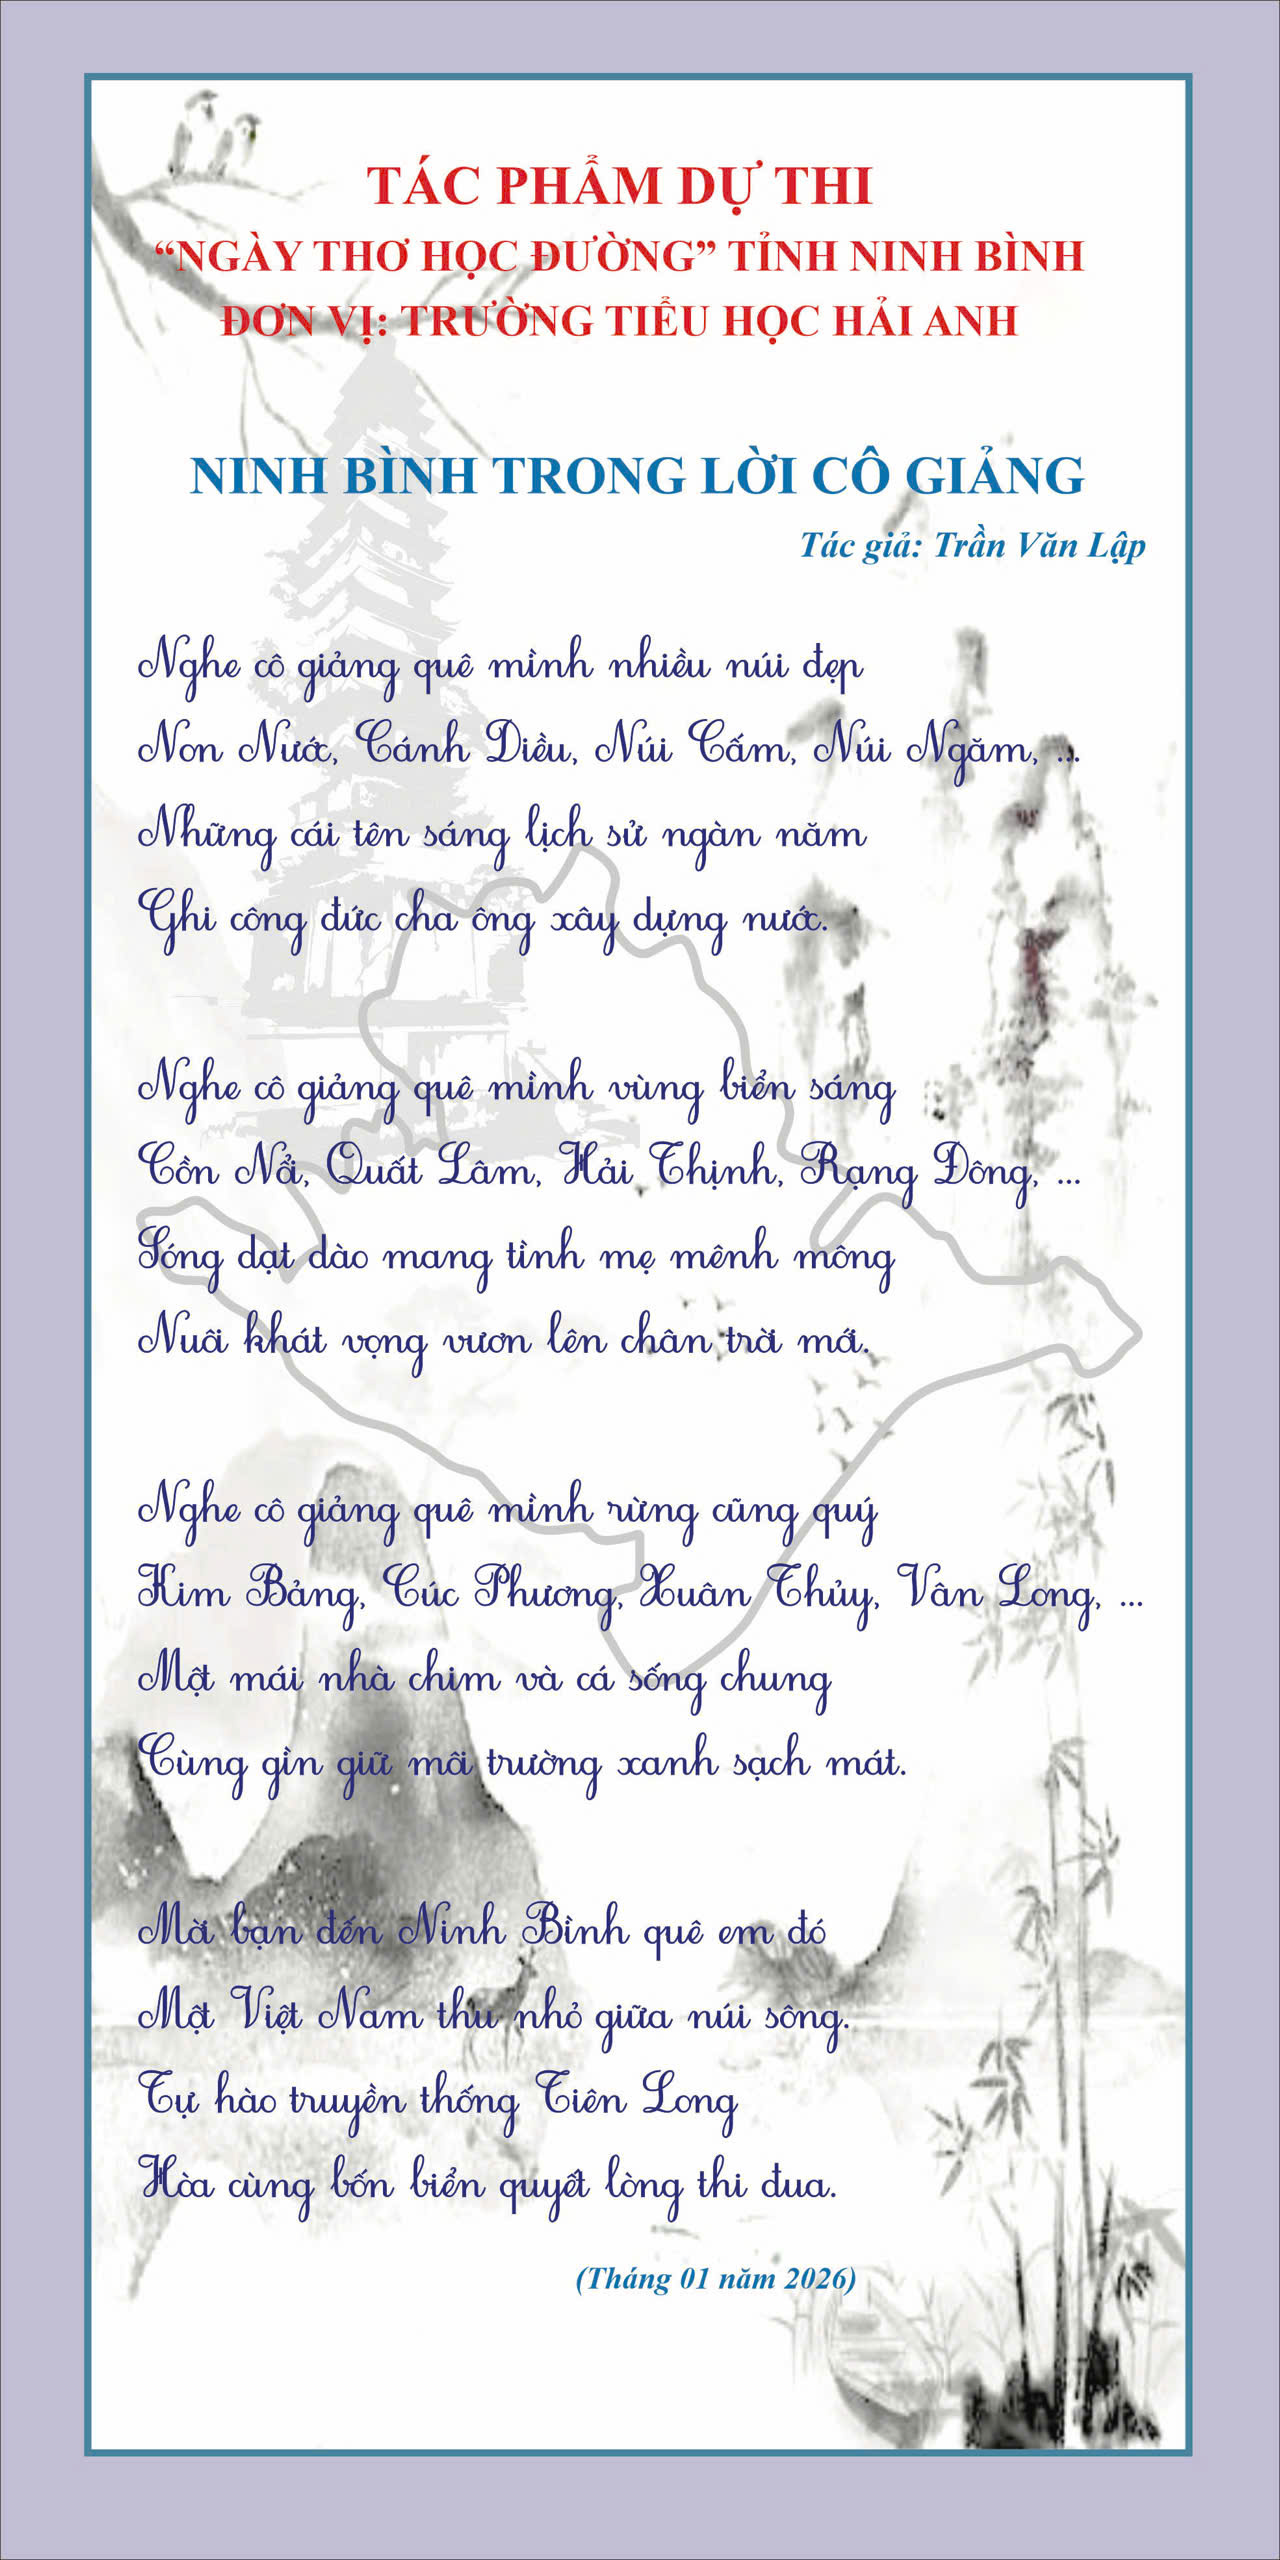 TÁC PHẨM DỰ THI
“NGÀY THƠ HỌC ĐƯỜNG” TỈNH NINH BÌNH
ĐƠN VỊ: TRƯỜNG TIỂU HỌC HẢI ANH
NINH BÌNH TRONG LỜI CÔ GIẢNG
Tác giả: Trần Văn Lập
Nghe cô giảng quê mình nhiều núi đẹp
Non Nước, Cánh Diều, Núi Cấm, Núi Ngăm, ...
Những cái tên sáng lịch sử ngàn năm
Ghi công đức cha ông xây dựng nước.
Nghe cô giảng quê mình vùng biển sáng
Cồn Nổi, Quất Lâm, Hải Thịnh, Rạng Đông, ...
Sóng dạt dào mang tình mẹ mênh mông
Nuôi khát vọng vươn lên chân trời mới.
Nghe cô giảng quê mình rừng cũng quý
Kim Bảng, Cúc Phương, Xuân Thủy, Vân Long, ...
Một mái nhà chim và cá sống chung
Cùng gìn giữ môi trường xanh sạch mát.
Mời bạn đến Ninh Bình quê em đó
Một Việt Nam thu nhỏ giữa núi sông.
Tự hào truyền thống Tiên Long
Hòa cùng bốn biển quyết lòng thi đua.
(Tháng 01 năm 2026)